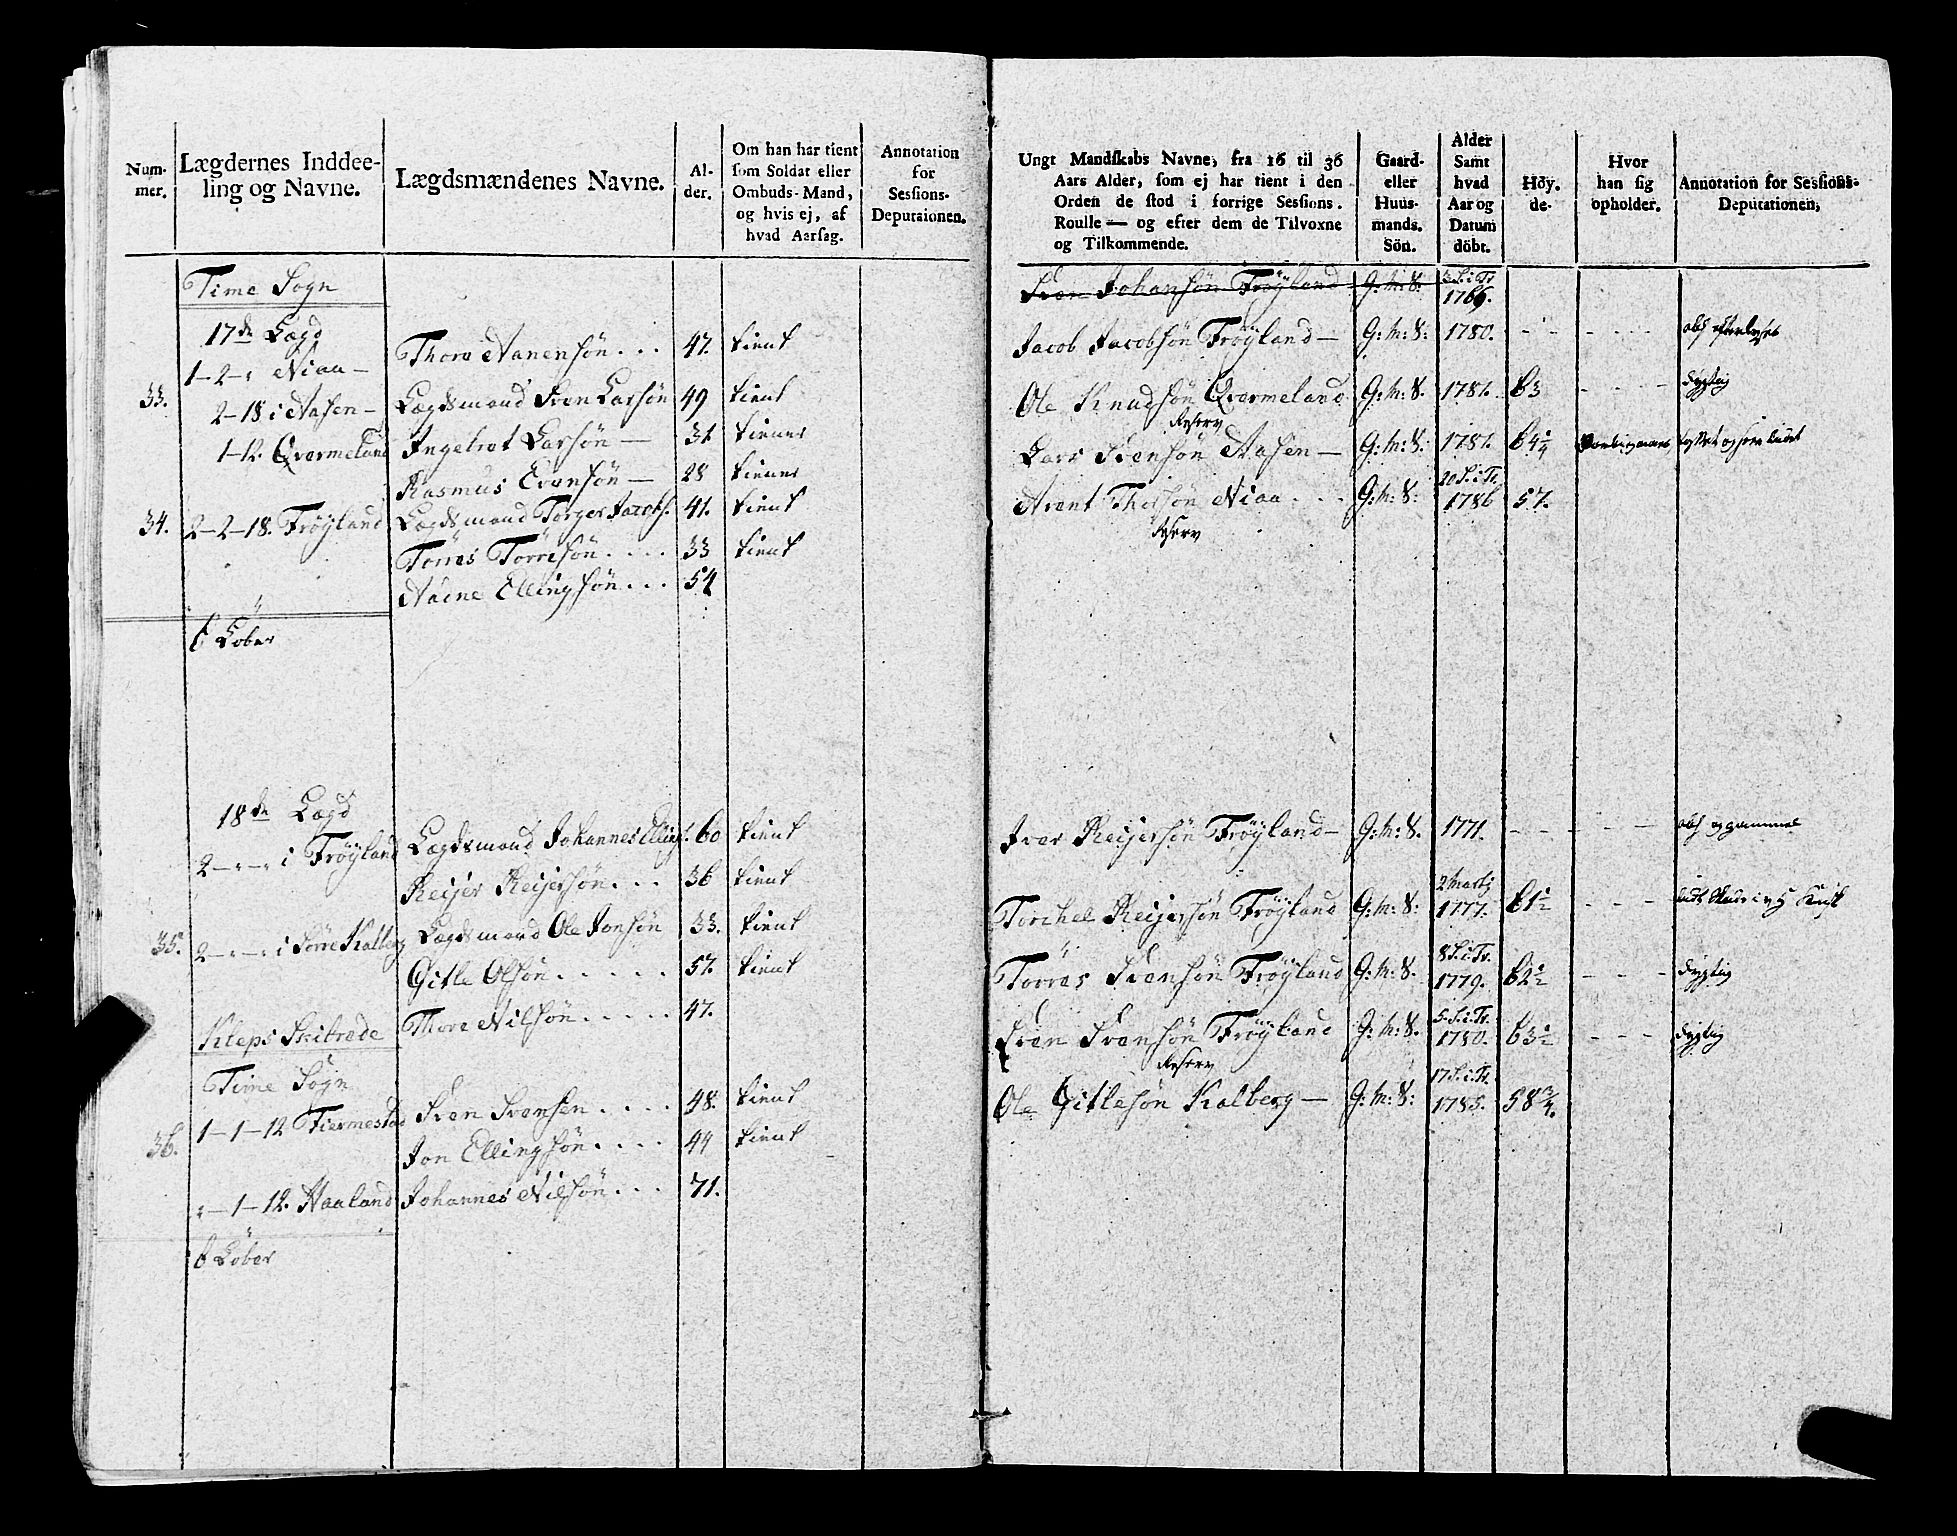 Num-
mer.
Lægdernes Inddee-
ling og Navne.
Lægdsmændenes Navne.
Al-
der.
Om han har tient
som Soldat eller
Ombuds-Mand,
og hvis ej, af
hvad Aarsag.
Annotation
for
Sessions-
Deputaionen.
Time Sogn
17de Lægd
1-2-" Niaa-
Thore Aanensön... 47. tient
33.
2-18 i Aasen-
Lægdsmand Sven Larsön 49 tient
1-12. Qvermeland
Ingebret Larsön- 31 tiener
Rasmus Evensön- 28 tiener
34. 2-2-18. Fröyland
Lægdsmand Torger Jacobs. 41. tient
Törres Törresön.... 33 tient
Aadne Ellingsön... 54
6 Löber
18de Lægd
2-"-" i Fröyland
Lægdsmand Johannes Ellings. 60 tient
Reijer Reijersön... 36 tient
35. 2-"-" i Sörre Kalberg
Lægdsmand Ole Jonsön 33. tient
Gitle Olsön..... 57. tient
Kleps Skibrede
Thore Nilsön..... 47.
Time Sogn
36. 1-1-12 Tiermestad
Sven Svensen.... 48. tient
Jon Ellingsön.... 44 tient
"-1-12. Haaland
Johannes Nilsön... 71.
6 Löber
Ungt Mandskabs Navne, fra 16 til 36
Aars Alder, som ej har tient i den
Orden de stod i forrige Sessions.
Roulle — og efter dem de Tilvoxne
og Tilkommende.
Gaard-
eller
Huus-
mands.
Sön.
Alder
Samt
hvad
Aar og
Datum
döbt.
Höy.
de-
Hvor
han sig
opholder.
Annotation for Sessions-
Deputationen,
Sven Johansön Fröyland G:M:S: 3 S. i Tr. 1769.
Jacob Jacobsön Fröyland- G:M:S: 1780.
Ole Knudsön Qvermeland G:M:S. 1781. 63 dygtig
Reserv
Lars Svensön Aasen- G:M:S: 1781. 64 1/4
Arent Thorsön Niaa... G:M:S: 20 S. i Tr. 1786 57.
Reserv
Iver Reijersön Fröyland- G:M:S. 1771. obs og gammel
Torchel Reijersön Fröyland G:M:S: 2 Martij 1777. 61 1/2
Törres Svensön Fröyland G:M:S. 8 S. i Tr. 1779. 62 1/2 dygtig
Sven Svensön Fröyland G:M:S. 5. S. i Tr. 1780. 63 1/2 dygtig
Reserv
Ole Gitlesön Kalberg- G:M:S: 17 S. i Tr. 1785. 58 3/4.